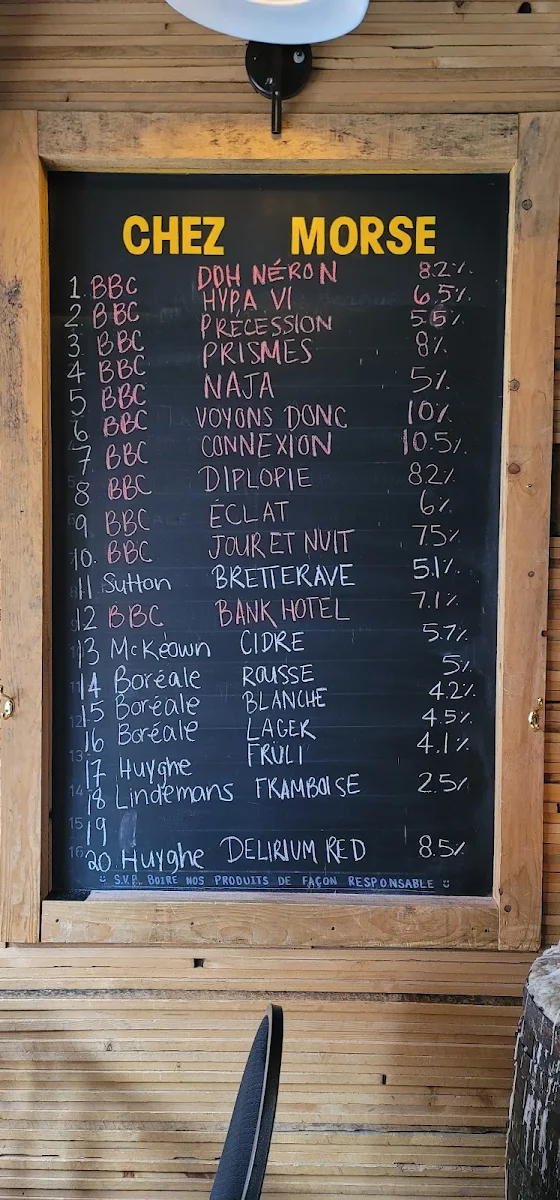 CHEZ MORSE
1. BBC DDH NÉRON 8.2%
2. BBC HYPA VI 6.5%
3. BBC PRÉCESSION 5.5%
4 BBC PRISMES 8%
5 BBC NAJA 5%
6 BBC VOYONS DONC 10%
7 BBC CONNEXION 10.5%
8 BBC DIPLOPIE 8.2%
9 BBC ÉCLAT 6%
10. BBC JOUR ET NUIT 75%
11 Sutton BRETTERAVE 5.1%
12 BBC BANK HOTEL 7.1%
13 McKeown CIDRE 5.7%
14 Boréale ROUSSE 5%
15 Boréale BLANCHE 4.2%
16 Boréale LAGER 4.5%
17 Huyghe FRÜLI 4.1%
18 Lindemans FRAMBOISE 2.5%
19
20 Huyghe DELIRIUM RED 8.5%
S.V.P. BOIRE NOS PRODUITS DE FAÇON RESPONSABLE